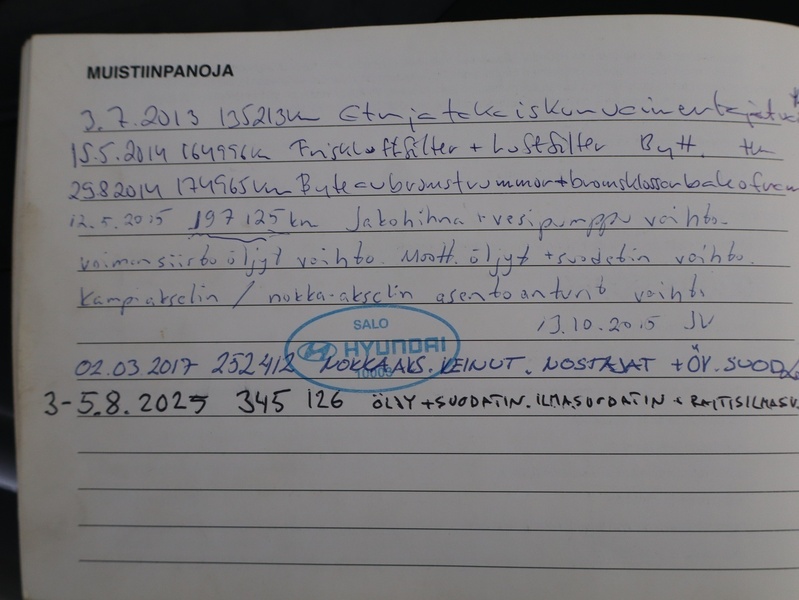 MUISTIINPANOJA
3.7.2013 135213km Etu ja taka iskunvaimentajat
15.5.2014 164996km Friskluftfilter + Luftfilter Bytt.
29.8.2014 174965km Byte av bromstrummor + bromsklossar bak o fram
12.5.2015 197 125km Jakohihna + vesipumppu vaihto.
voimansiirto öljyt vaihto. Moott. öljyt + suodatin vaihto.
Kampiakselin / nokka-akselin asentoanturit vaihto
13.10.2015 JV
SALO
HYUNDAI
02.03.2017 252412 NOKKA AKS. KEINUT. NOSTAJAT + ÖV. SUOD
3-5.8.2025 345 126 ÖLJY + SUODATIN. ILMASUODATIN + RAITISILMAS